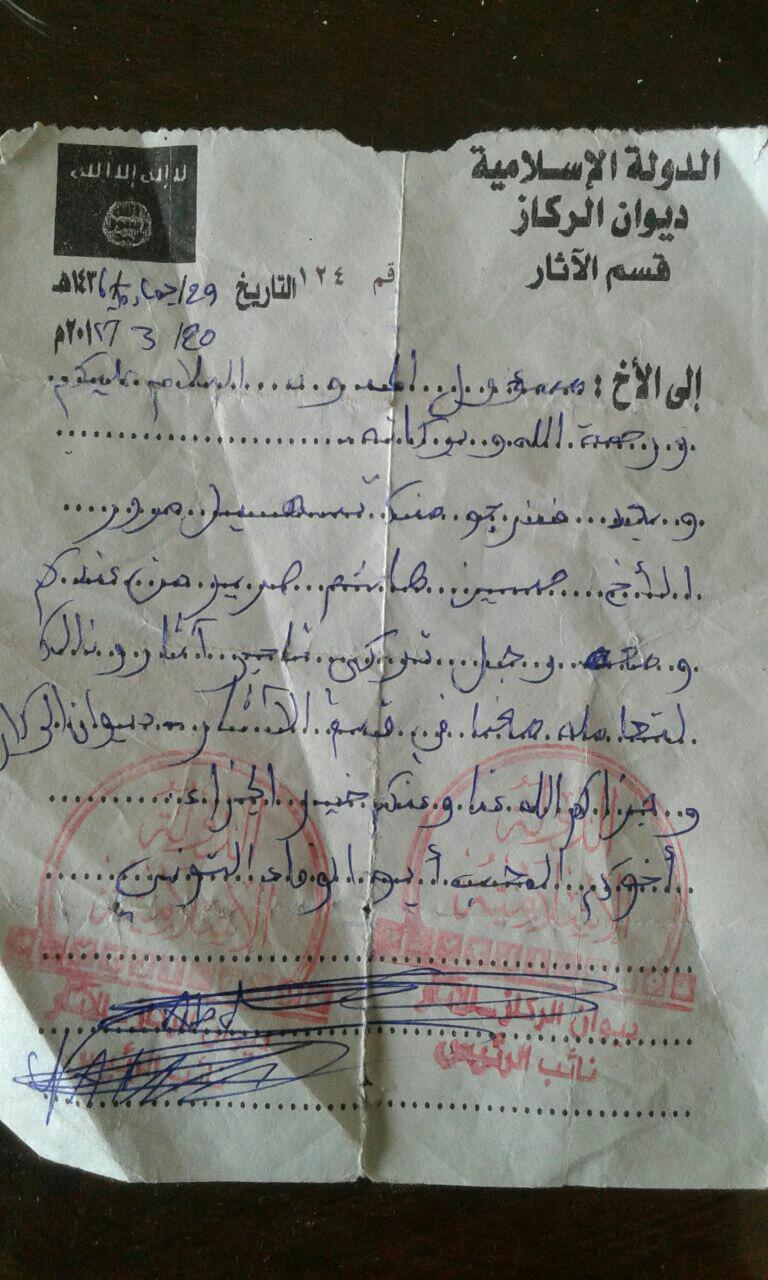 الدولة الإسلامية
ديوان الركاز
قسم الآثار
لا إله إلا الله
قم ١٢٤
التاريخ 29/جما /١٤٣٦هـ
20/ 3 /٢٠١٧م
إلى الأخ : مسؤول الحدود السلام عليكم
ورحمة الله وبركاته
وبعد فنرجو منك تسهيل مرور
الأخ حسين هاشم من عندكم
ومعه رجل تركي تاجر آثار وذالك
لتعامله معنا في قسم الآثار ديوان الركاز
وجزاكم الله عنا وعنكم خير الجزاء
أخوكم المحب أبو الوفاء التونسي
الدولة الإسلامية
ديوان الركاز الآثار
نائب الرئيس